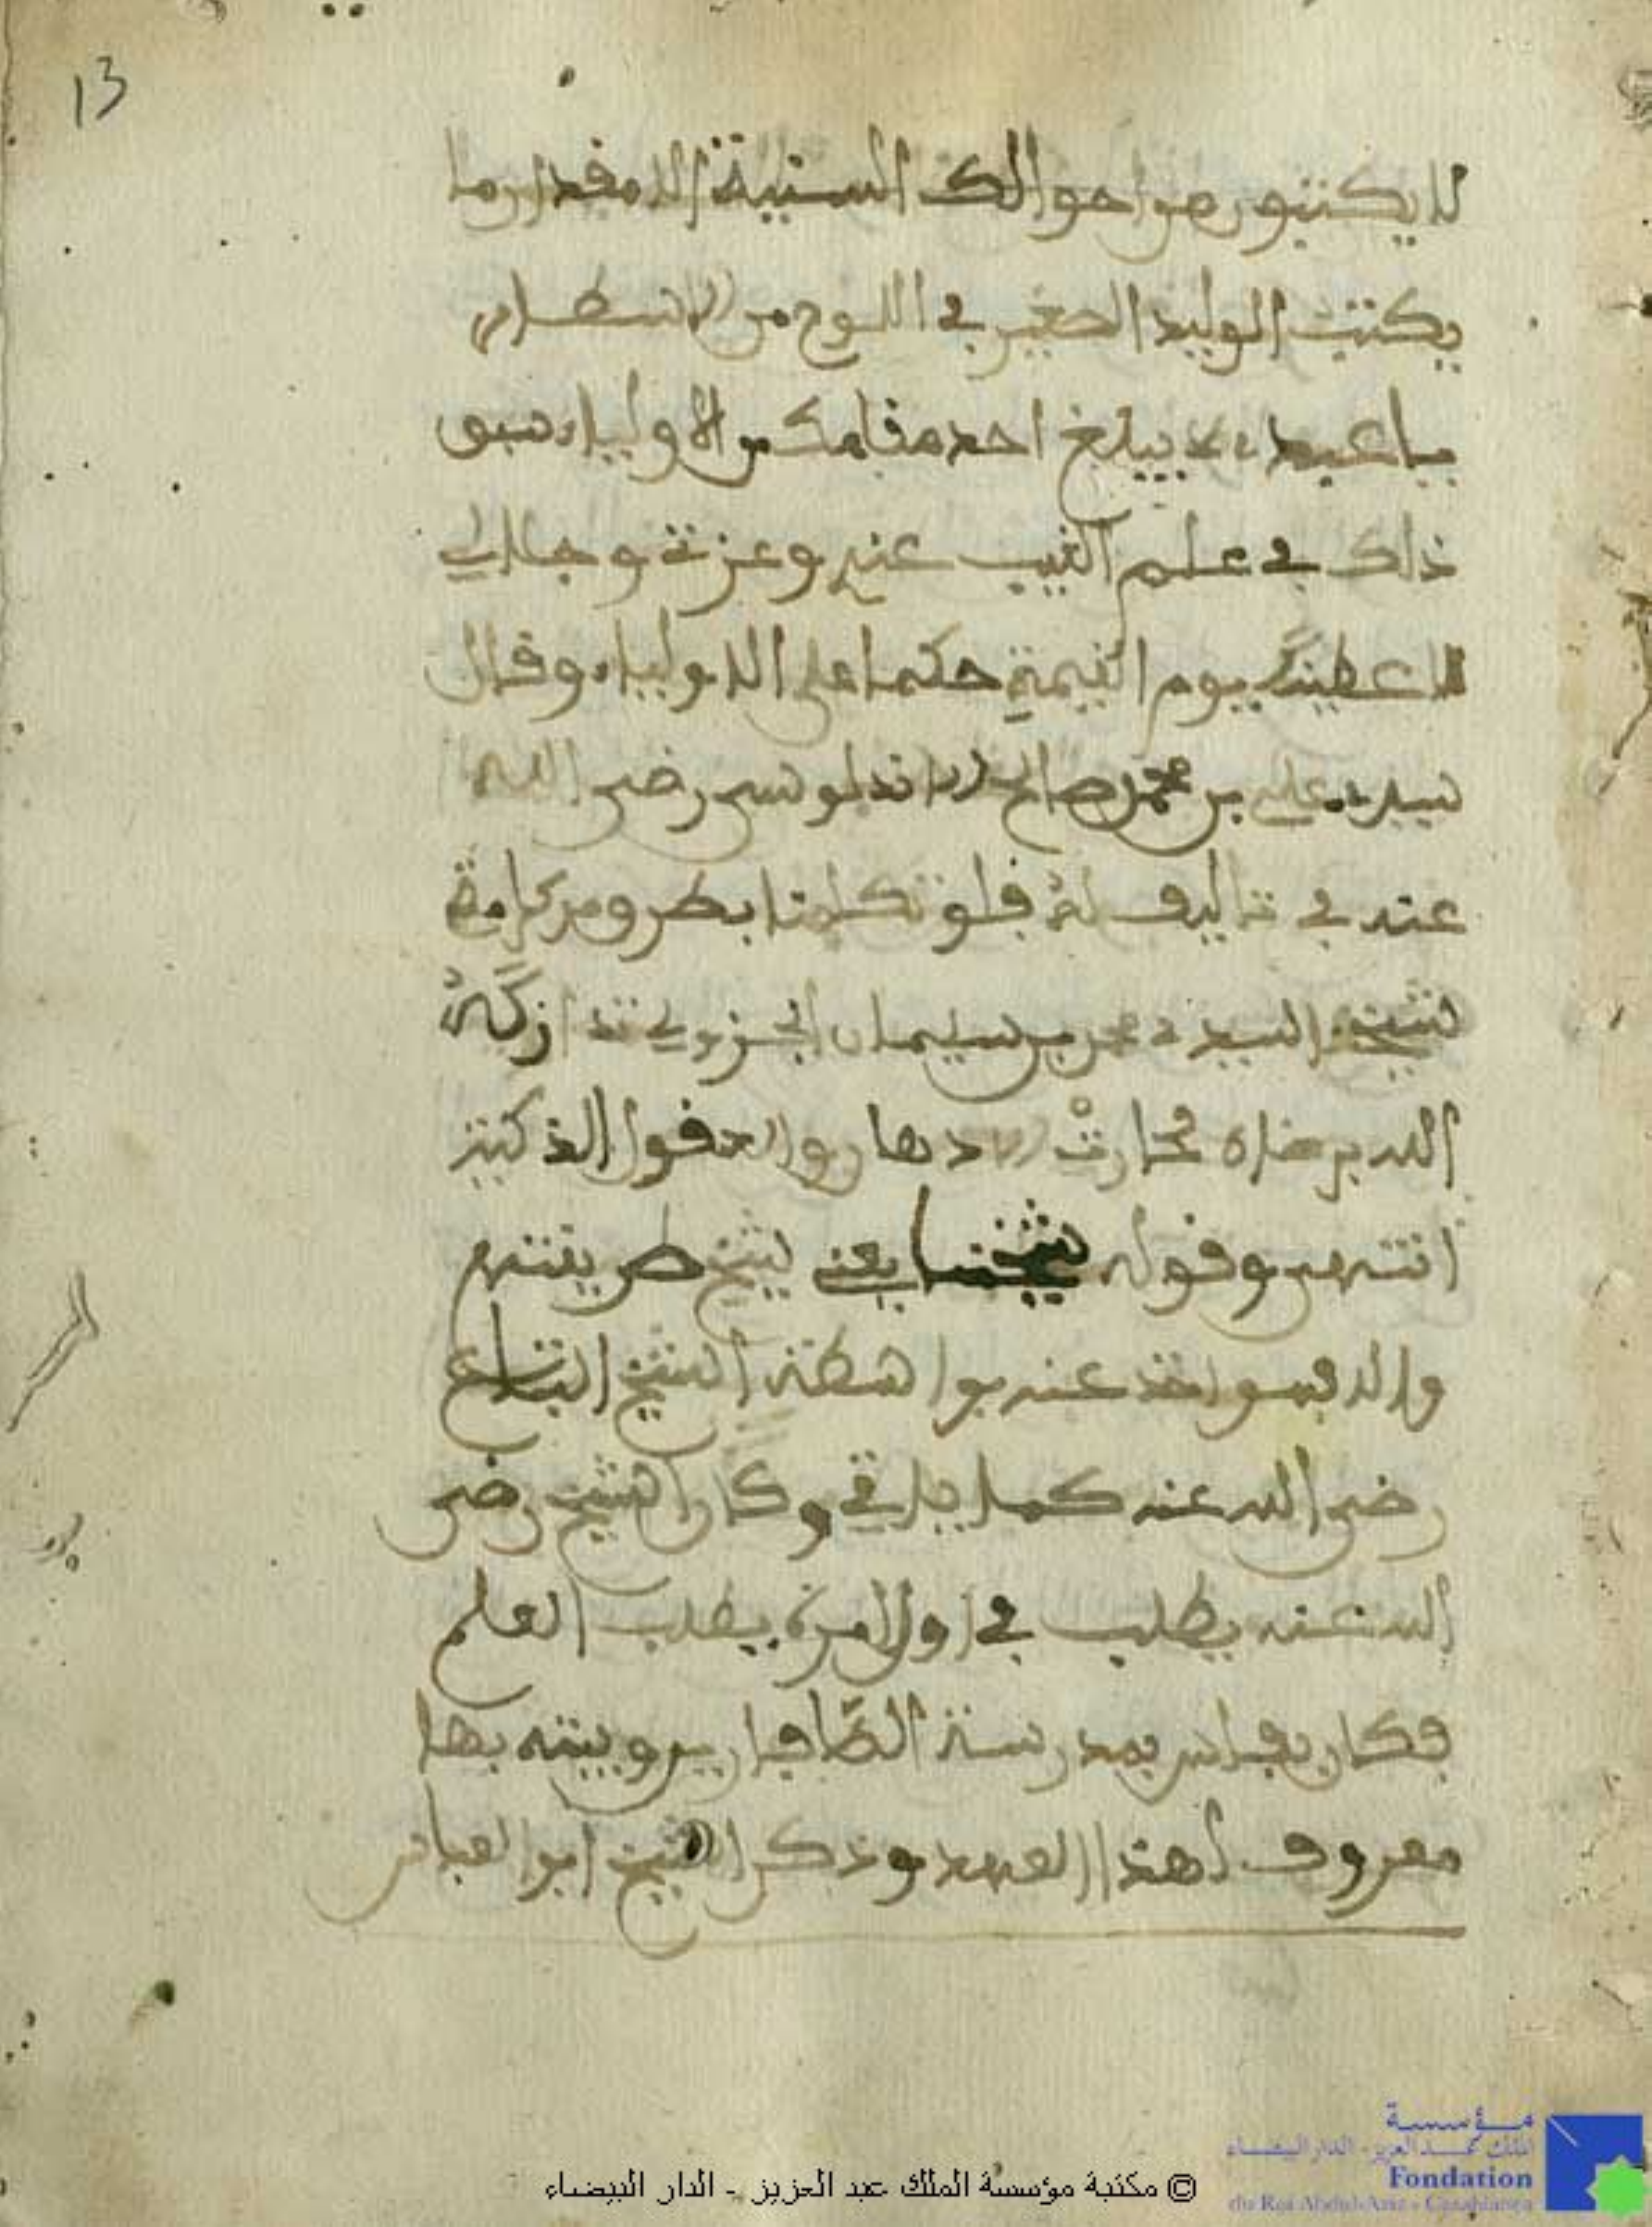 13
لا يكتبون من احوالك السنية الا مقدار ما
يكتب الوليد الصغير في اللوح من الاسطار
يا عبدي لا يبلغ احد مقامك من الاولياء سبق
ذلك في علم الغيب عندي وعزتي وجلالي
لاعطينك يوم القيمة حكما على الاولياء وقال
سيدي علي بن محمد صالح الاندلوسي رضي الله
عنه في تاليف له فلو تكلمنا بطرو من كرامة
شيخنا السيد محمد بن سليمان الجزولي تداركه
الله برضاه لحارت الادهان والعقول الذكية
انتهى وقوله شيخنا يعني شيخ طريقتهم
والا فهو اخذ عنه بواسطة الشيخ التباع
رضي الله عنه كما ياتي وكان الشيخ رضي
الله عنه يطلب في اول امره يطلب العلم
فكان بفاس بمدرسة الصفارين وبيته بها
معروف لهذا العهد وذكر الشيخ ابو العباس
© مكتبة مؤسسة الملك عبد العزيز - الدار البيضاء
مؤسسة
الملك عبد العزيز - الدار البيضاء
Fondation
du Roi Abdul-Aziz - Casablanca